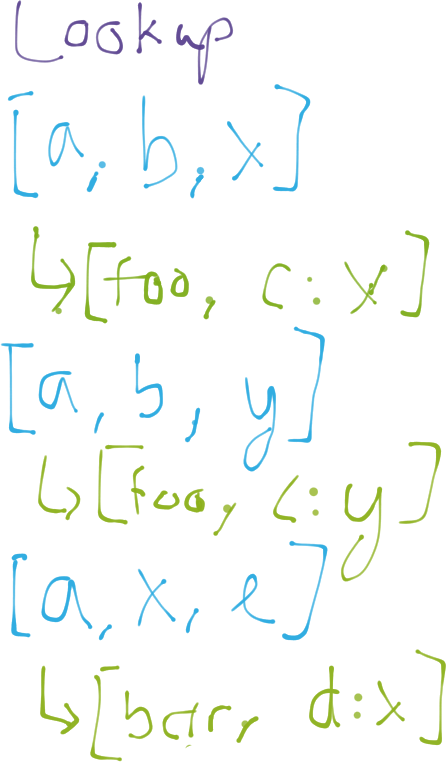 Lookup
[a, b, x]
↳[foo, c:x]
[a, b, y]
↳[foo, c:y]
[a, x, e]
↳[bar, d:x]